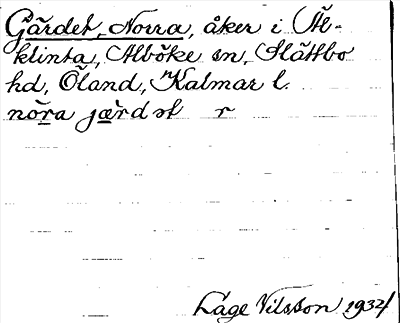 Gärdet, Norra, åker i Äl-
klinta, Alböke sn, Slättbo
hd, Öland, Kalmar l.
nora jærdət r
Lage Nilsson 1934